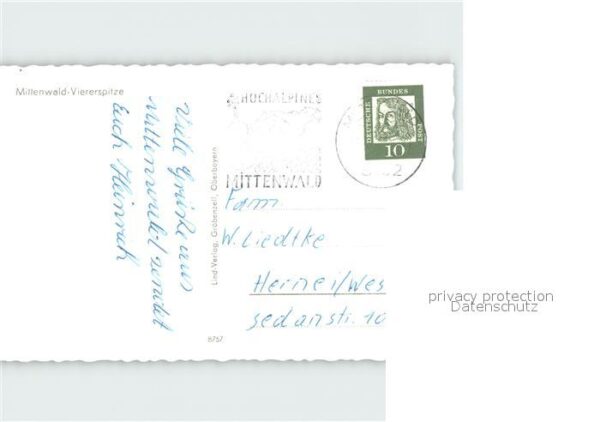 Mittenwald-Viererspitze
Viele Grüße aus
Mittenwald sendet
Euch Heinrich
Lind-Verlag, Gröbenzell, Oberbayern
8757
HOCHALPINES
MITTENWALD
DEUTSCHE
BUNDES
POST
10
Fam.
W. Liedtke
Herne i/Wes
Sedanstr. 10
privacy protection
Datenschutz